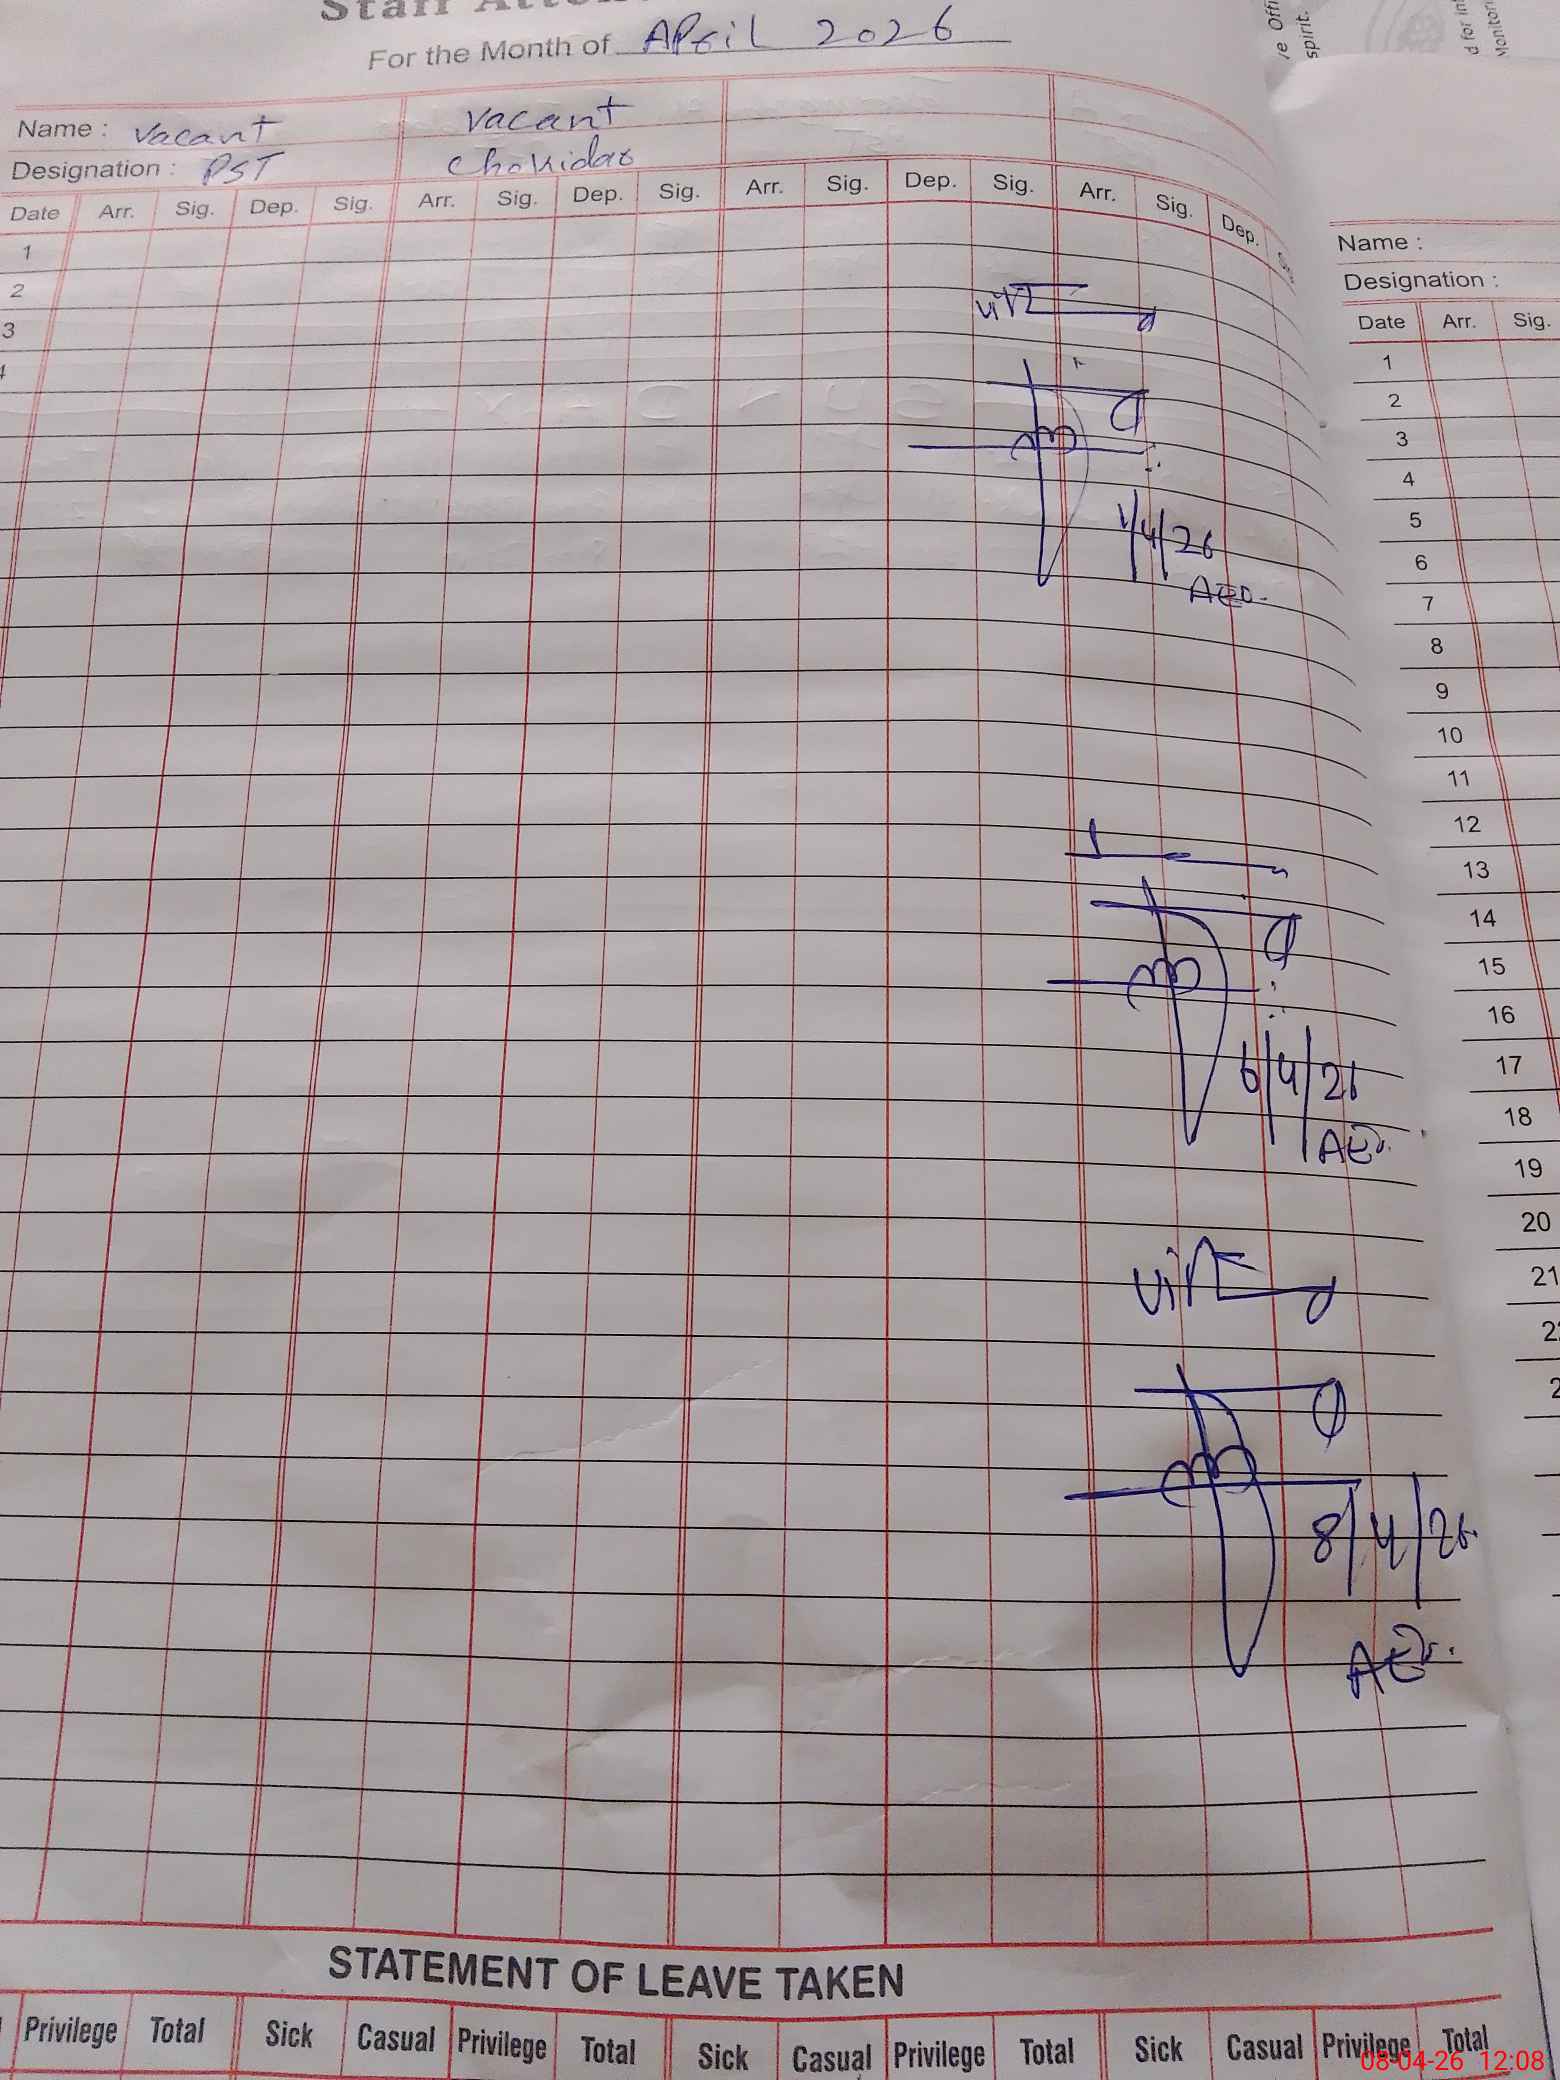 Staff Atten
For the Month of April 2026
Name : Vacant Vacant
Designation : PST Chokidar
Date Arr. Sig. Dep. Sig. Arr. Sig. Dep. Sig. Arr. Sig. Dep. Sig. Arr. Sig. Dep.
1
2
3
4
1/4/26
AEO.
6/4/26
AEO.
8/4/26
AEO.
STATEMENT OF LEAVE TAKEN
Privilege Total Sick Casual Privilege Total Sick Casual Privilege Total Sick Casual Privilege Total
08-04-26 12:08
spirit.
d for int
Monitori
Name :
Designation :
Date Arr. Sig.
1
2
3
4
5
6
7
8
9
10
11
12
13
14
15
16
17
18
19
20
21